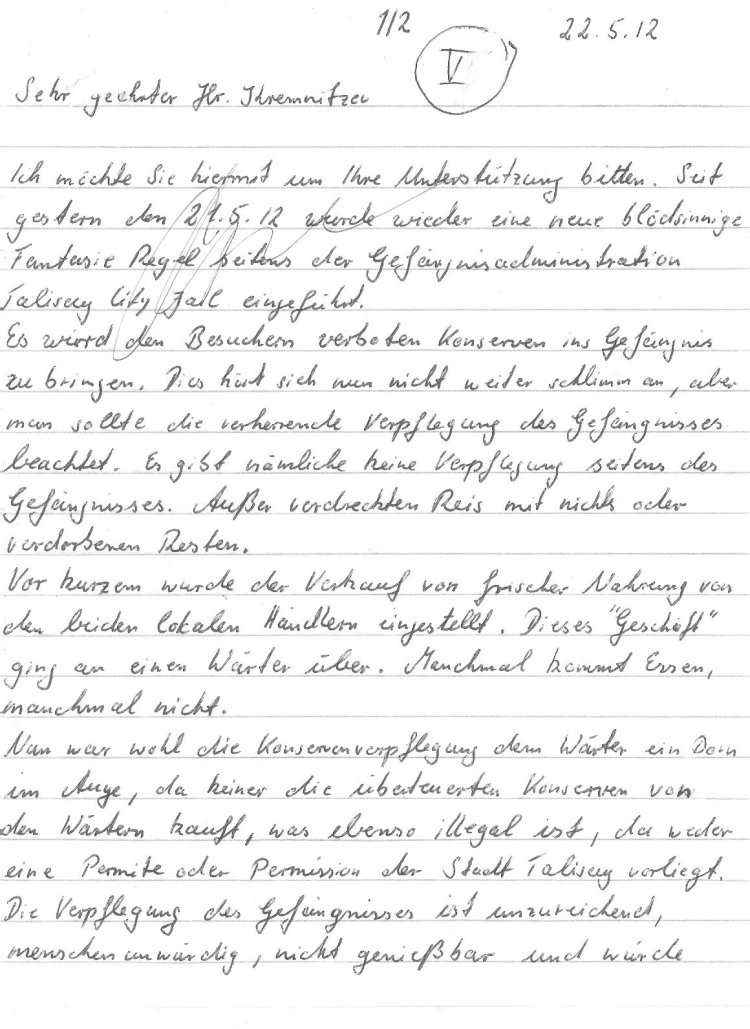 1/2 22.5.12
V
Sehr geehrter Hr. Kremnitzer
Ich möchte Sie hiermit um Ihre Unterstützung bitten. Seit
gestern den 21.5.12 wurde wieder eine neue blödsinnige
Fantasie Regel seitens der Gefängnisadministration
Talisay City Jail eingeführt.
Es wird den Besuchern verboten Konserven ins Gefängnis
zu bringen. Dies hört sich nun nicht weiter schlimm an, aber
man sollte die verherrende Verpflegung des Gefängnisses
beachtet. Es gibt nämliche keine Verpflegung seitens des
Gefängnisses. Außer verdreckten Reis mit nichts oder
verdorbenen Resten.
Vor kurzem wurde der Verkauf von frischer Nahrung von
den beiden lokalen Händlern eingestellt. Dieses "Geschäft"
ging an einen Wärter über. Manchmal kommt Essen,
manchmal nicht.
Nun war wohl die Konservenverpflegung dem Wärter ein Dorn
im Auge, da keiner die überteuerten Konserven von
den Wärtern kauft, was ebenso illegal ist, da weder
eine Permite oder Permission der Stadt Talisay vorliegt.
Die Verpflegung des Gefängnisses ist unzureichend,
menschenunwürdig, nicht genießbar und würde